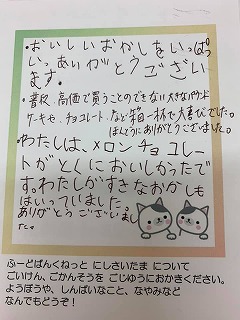 ・おいしいおかしをいっぱ
いっありがとうござい
ます。
・普段、高価で買うことのできない大きなパウンド
ケーキや、チョコレート、など箱一杯で大喜びでした。
ほんとうにありがとうございました。
・わたしは、メロンチョコレー
トがとくにおいしかったで
す。わたしがすきなおかしも
はいっていました。
ありがとうございまし
た。
ふーどばんくねっと にしさいたま について
ごいけん、ごかんそうを ごじゆうにおかきください。
ようぼうや、しんぱいなこと、なやみなど
なんでもどうぞ！